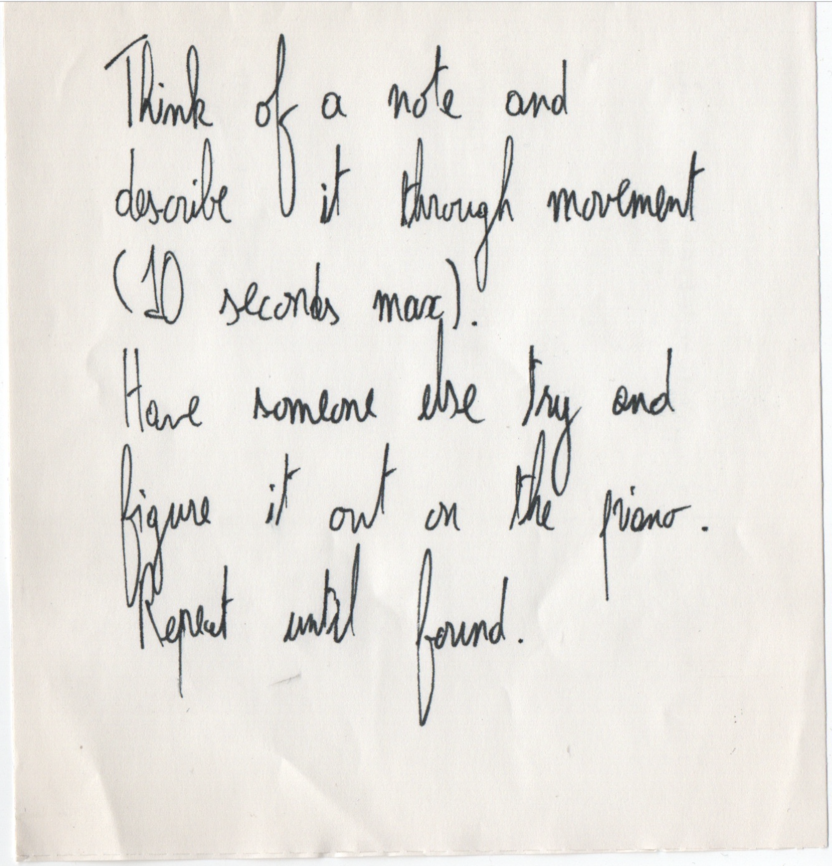 Think of a note and
describe it through movement
(10 seconds max).
Have someone else try and
figure it out on the piano.
Repeat until found.